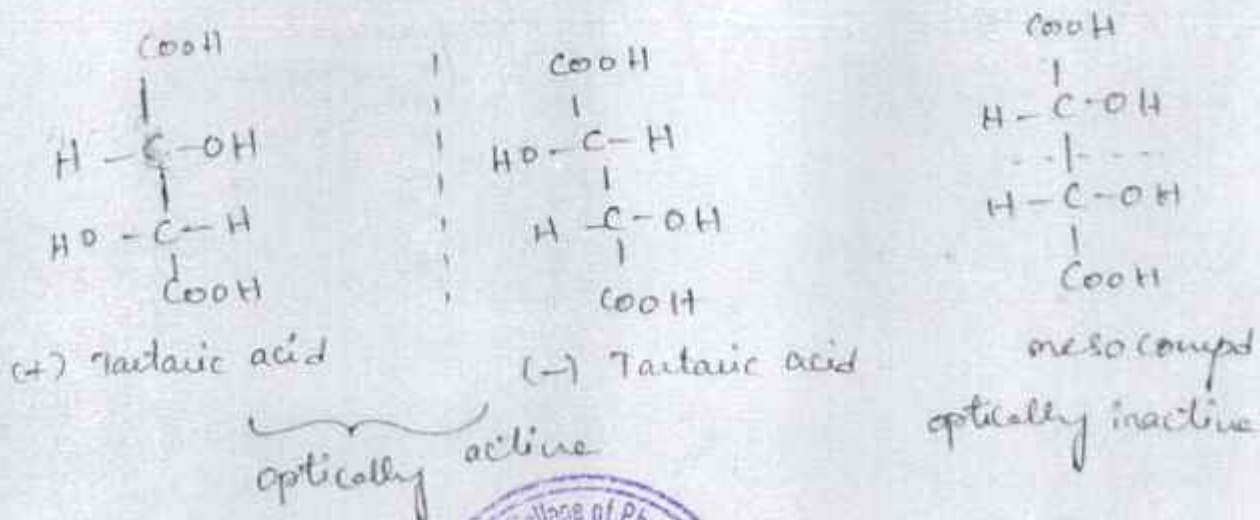 COOH
H - C - OH
HO - C - H
COOH
(+) Tartaric acid
COOH
HO - C - H
H - C - OH
COOH
(-) Tartaric acid
optically active
COOH
H - C - OH
H - C - OH
COOH
meso compd
optically inactive
college of Ph